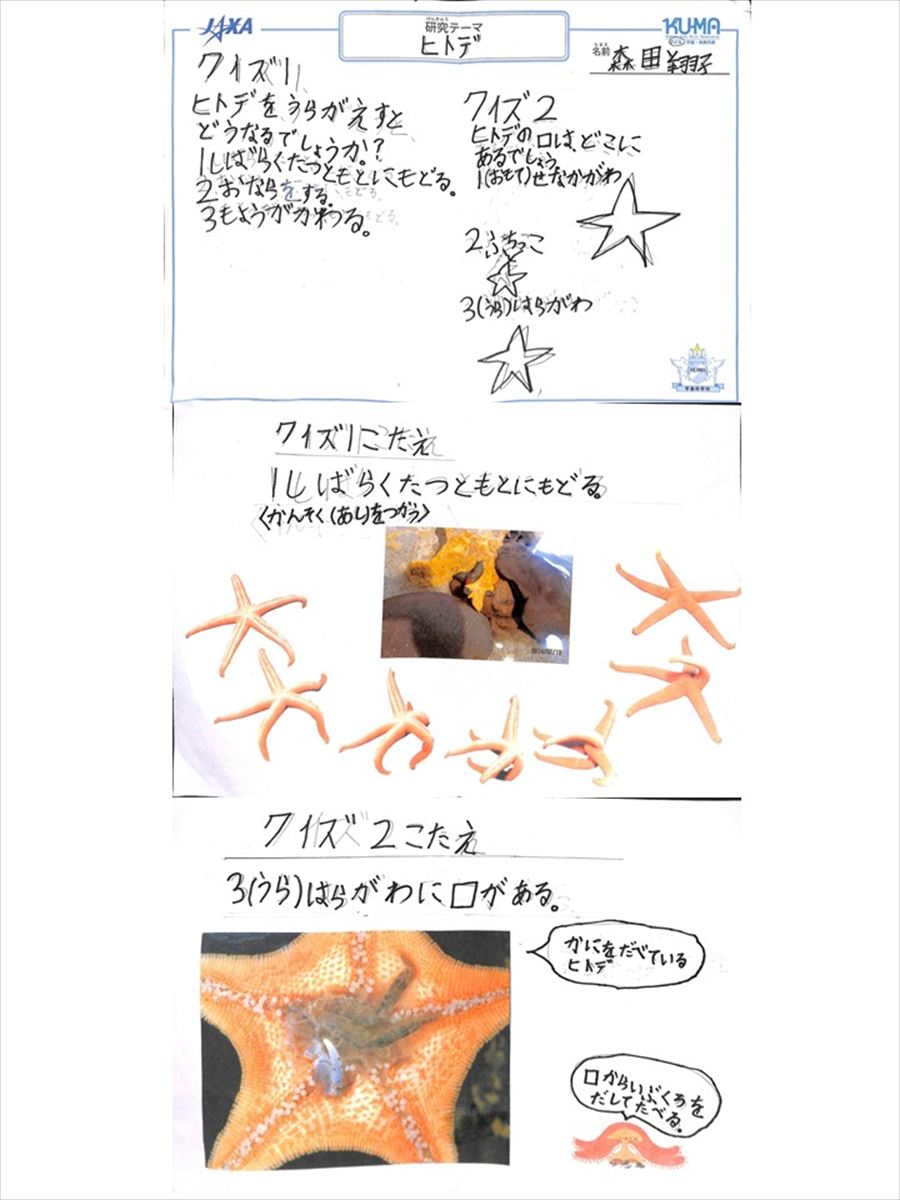 JAXA
けんきゅう
研究テーマ
ヒトデ
KU-MA
なまえ
名前 森田 翔子
クイズ1
ヒトデをうらがえすと
どうなるでしょうか?
1しばらくたつともとにもどる。
2おならをする。
3もようがかわる。
クイズ2
ヒトデの口は、どこに
あるでしょう。
1(おもて)せなかがわ
2ふちっこ
3(うら)はらがわ
クイズ1こたえ
1しばらくたつともとにもどる。
〈かんそく(あし)をつかう〉
2014/07/10
クイズ2こたえ
3(うら)はらがわに口がある。
かにをたべている
ヒトデ
口からいぶくろを
だしてたべる。